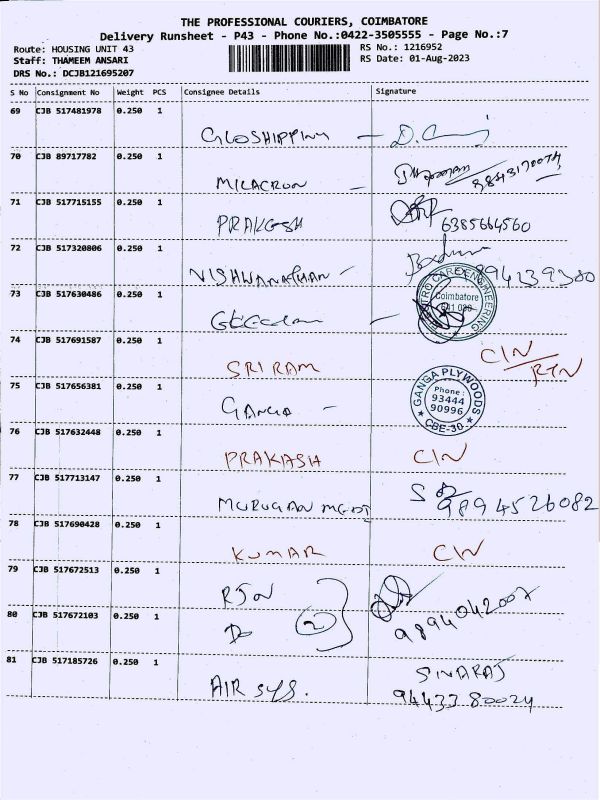 THE PROFESSIONAL COURIERS, COIMBATORE
Delivery Runsheet - P43 - Phone No.:0422-3505555 - Page No.:7
Route: HOUSING UNIT 43 RS No.: 1216952
Staff: THAMEEM ANSARI RS Date: 01-Aug-2023
DRS No.: DCJB121695207
S No Consignment No Weight PCS Consignee Details Signature
69 CJB 517481978 0.250 1
GLOSHIPPING —
70 CJB 89717782 0.250 1
MILACRON — 9843170074
71 CJB 517715155 0.250 1
PRAKESH 6385664560
72 CJB 517320806 0.250 1
VISHWANATHAN —
73 CJB 517630486 0.250 1
Coimbatore
641 030
CARE ENGINEERING
74 CJB 517691587 0.250 1
SRIRAM CIN/RTN
75 CJB 517656381 0.250 1
GANGA — GANGA PLYWOODS
Phone :
93444
90996
CBE-30
76 CJB 517632448 0.250 1
PRAKASH CIN
77 CJB 517713147 0.250 1
MURUGAN 9894526082
78 CJB 517690428 0.250 1
KUMAR
79 CJB 517672513 0.250 1
2
80 CJB 517672103 0.250 1
Do 9894042007
81 CJB 517185726 0.250 1
AIR SYS. SIVARAJ
9443380024